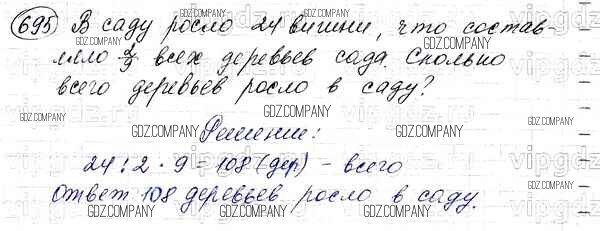 695 В саду росло 24 вишни, что состав-
ляло 2/9 всех деревьев сада. Сколько
всего деревьев росло в саду?
GDZ.COMPANY GDZ.COMPANY GDZ.COMPANY
Решение:
24 : 2 · 9 = 108 (дер) - всего
Ответ 108 деревьев росло в саду.
GDZ.COMPANY GDZ.COMPANY GDZ.COMPANY